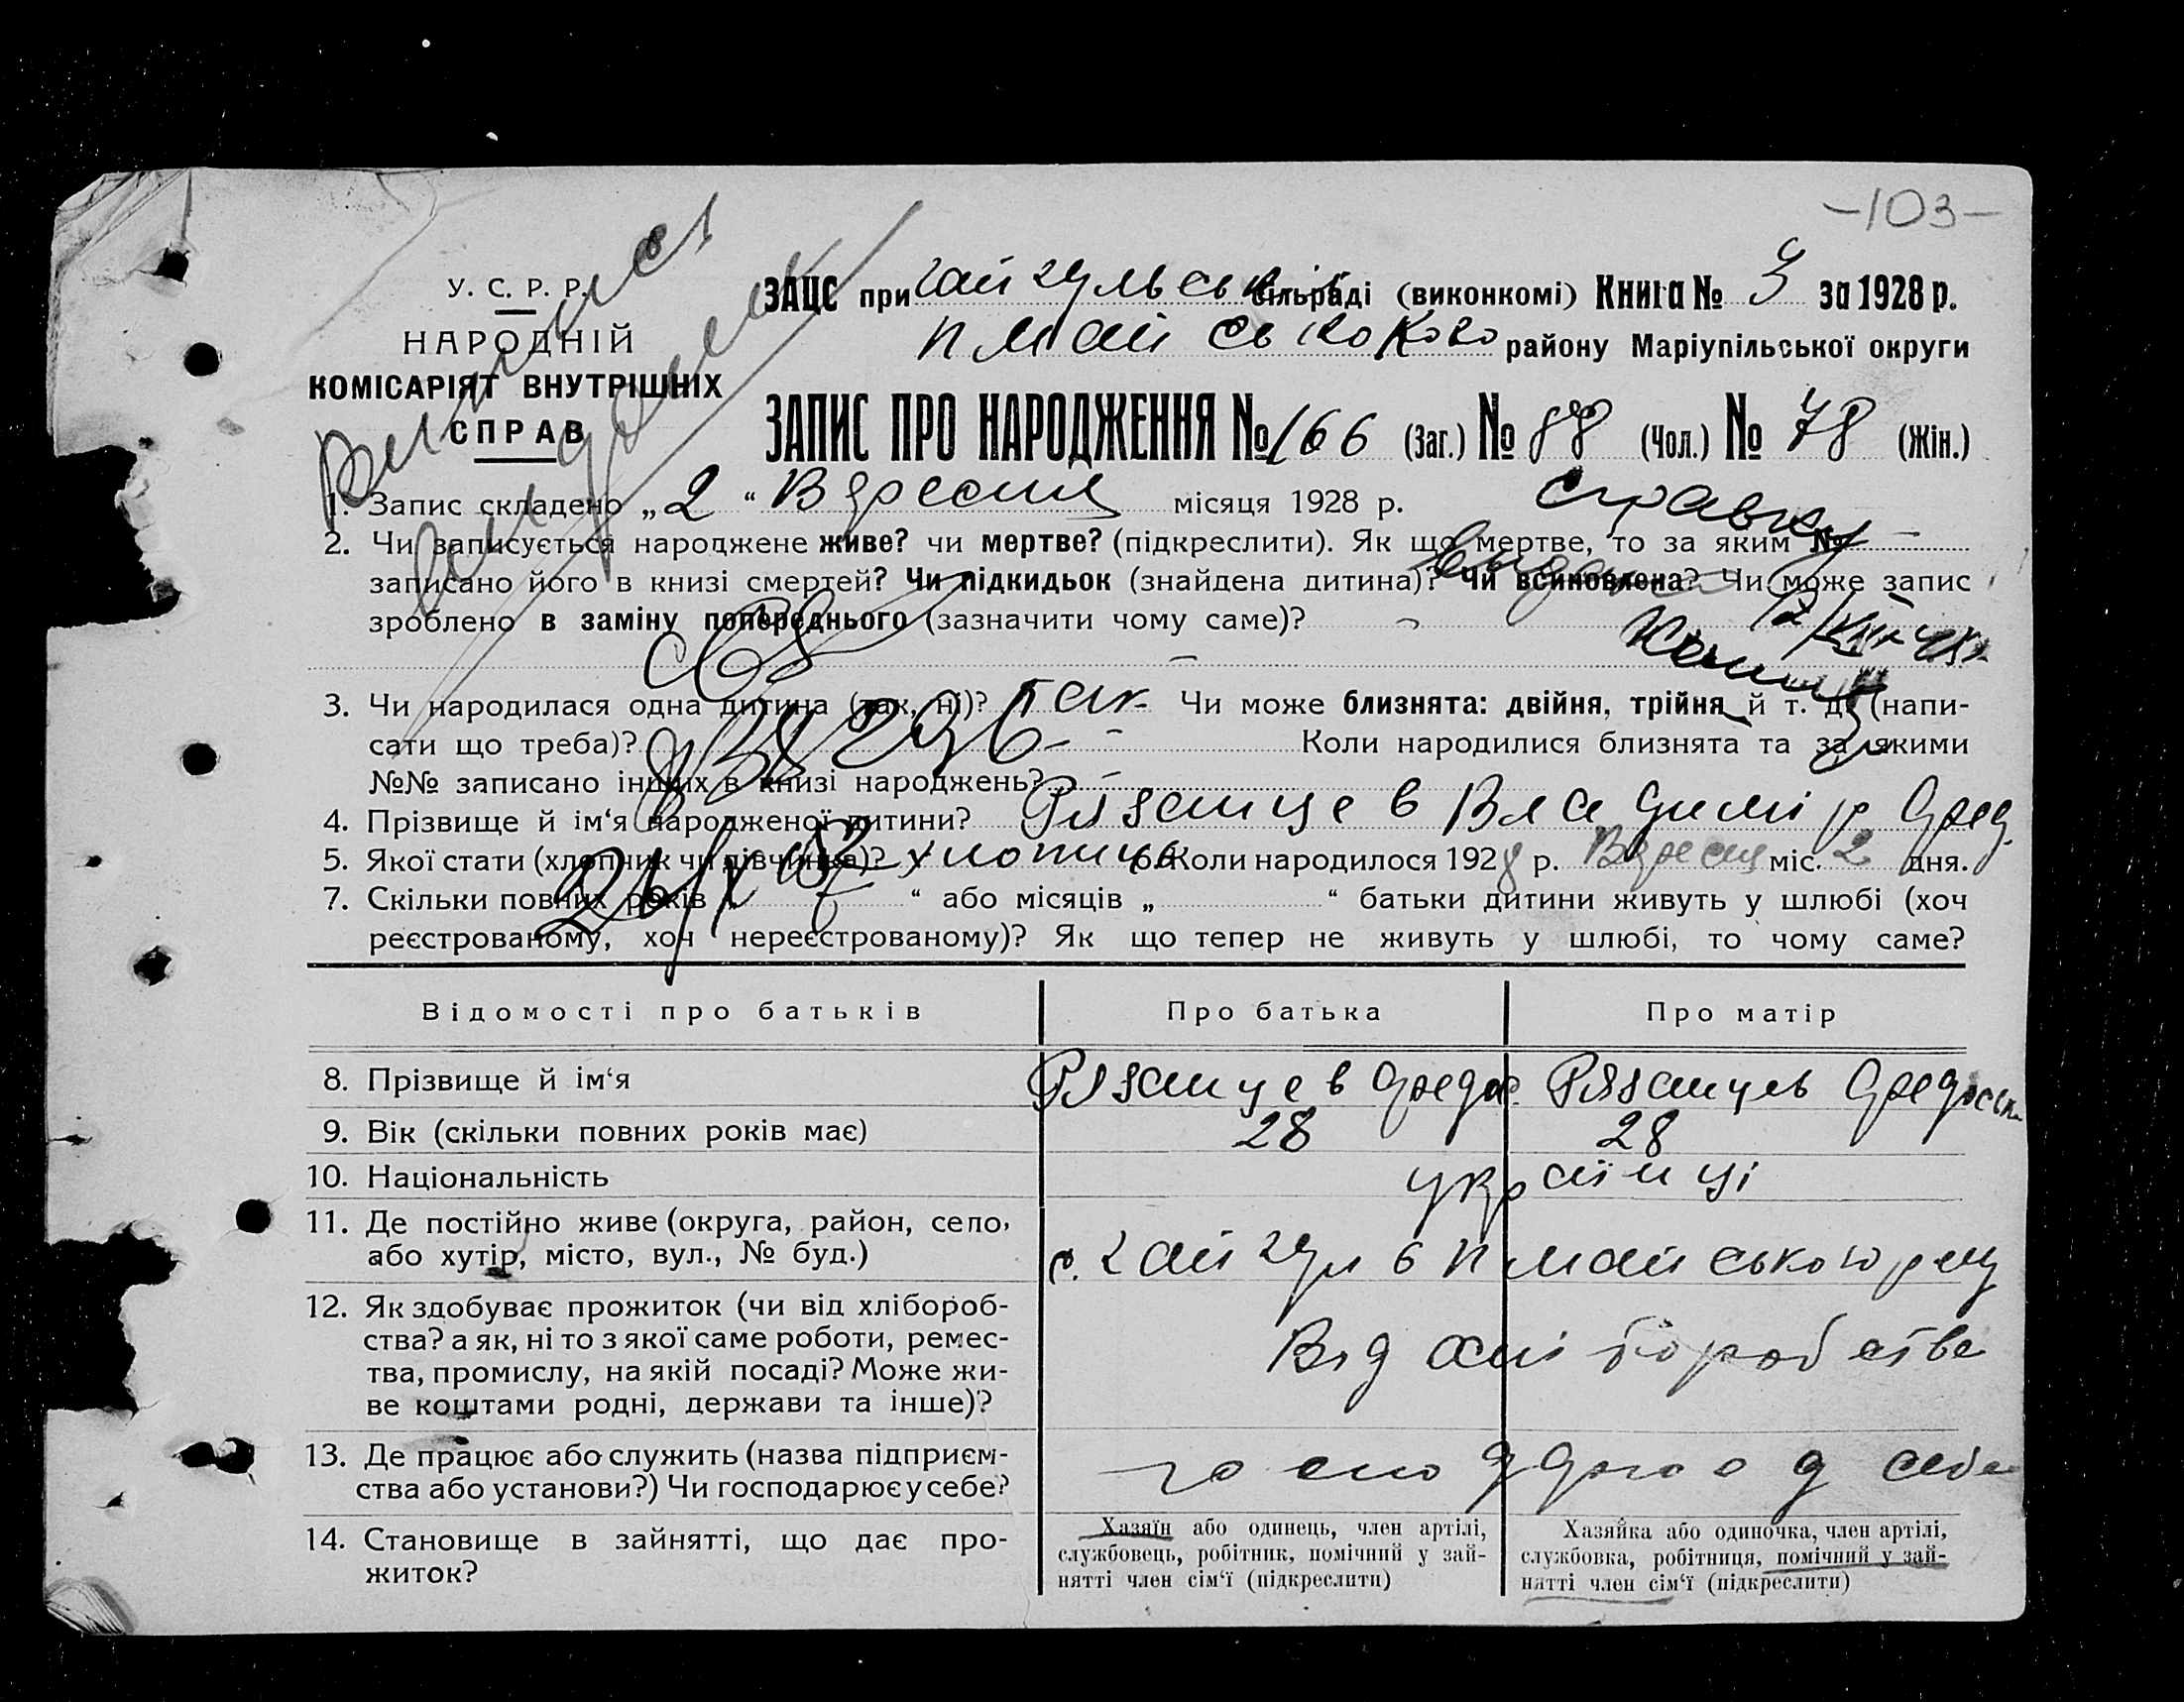 -103-
У. С. Р. Р.
НАРОДНІЙ
КОМІСАРІЯТ ВНУТРІШНІХ
СПРАВ
ЗАЦС при Гайчульській сільраді (виконкомі) Книга № 3 за 1928 р.
району Маріупільської округи
ЗАПИС ПРО НАРОДЖЕННЯ № 166 (Заг.) № 88 (Чол.) № 78 (Жін.)
1. Запис складено „ 2 “ Вересня місяця 1928 р.
Справку
2. Чи записується народжене живе? чи мертве? (підкреслити). Як що мертве, то за яким №
видано
записано його в книзі смертей? Чи підкидьок (знайдена дитина)? Чи всиновлена? Чи може запис
зроблено в заміну попереднього (зазначити чому саме)?
3. Чи народилася одна дитина (так, ні)? так Чи може близнята: двійня, трійня й т. д. (напи-
сати що треба)? Коли народилися близнята та за якими
№№ записано інших в книзі народжень?
4. Прізвище й ім‘я народженої дитини? Рязанцев Владимір Фед.
5. Якої стати (хлопчик чи дівчинка)? хлопичь 6. Коли народилося 1928 р. Вересня міс. 2 дня.
7. Скільки повних років „ “ або місяців „ “ батьки дитини живуть у шлюбі (хоч
реєстрованому, хоч нереєстрованому)? Як що тепер не живуть у шлюбі, то чому саме?
Відомості про батьків Про батька Про матір
8. Прізвище й ім‘я Рязанцев Федос Рязанцев
9. Вік (скільки повних років має) 28 28
10. Національність українці
11. Де постійно живе (округа, район, село,
або хутір, місто, вул., № буд.) с. Гайчул
12. Як здобуває прожиток (чи від хлібороб-
ства? а як, ні то з якої саме роботи, ремес-
тва, промислу, на якій посаді? Може жи-
ве коштами родні, держави та інше)?
Від хліборобства
13. Де працює або служить (назва підприєм-
ства або установи?) Чи господарює у себе?
у себе
14. Становище в зайнятті, що дає про-
житок?
Хазяїн або одинець, член артілі,
службовець, робітник, помічний у зай-
нятті член сім‘ї (підкреслити)
Хазяйка або одиночка, член артілі,
службовка, робітниця, помічний у зай-
нятті член сім‘ї (підкреслити)